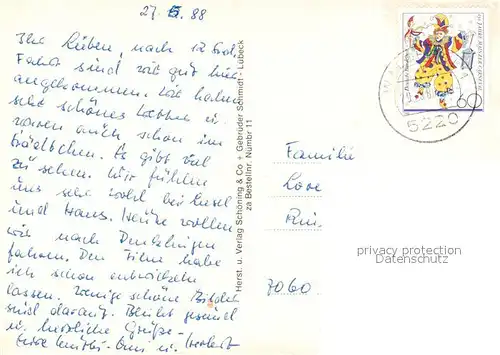 27. 5. 88
Ihr Lieben, nach 12 Std.
Fahrt sind wir gut hier
angekommen. Wir haben
sehr schönes Wetter u.
waren auch schon im
Städtchen. Es gibt viel
zu sehen. Wir fühlen
uns sehr wohl bei
und Hans. Heute wollen
wir nach Denklingen
fahren. Den Film habe
ich schon entwickeln
lassen. Wenige schöne Bilder
sind darauf. Bleibt gesund
u. herzliche Grüße
Eure Omi u. Herbert
Herst. u. Verlag Schöning & Co + Gebrüder Schmidt - Lübeck
za Bestellnr. Numbr 11
60
5220
Familie
7060
privacy protection
Datenschutz